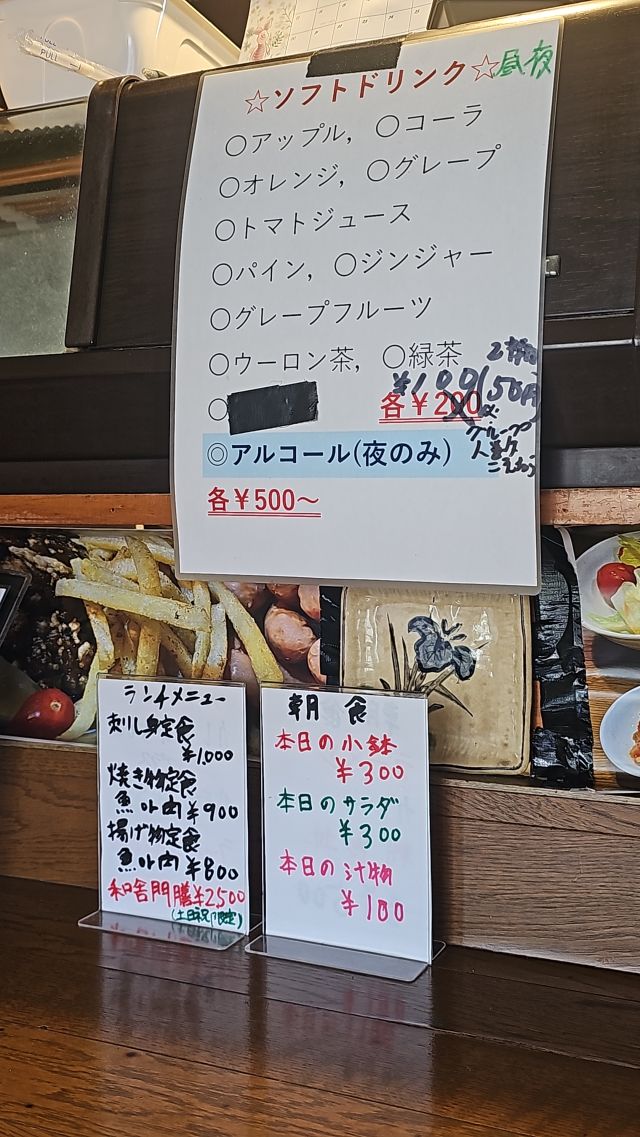 PULL
☆ソフトドリンク☆昼夜
○アップル, ○コーラ
○オレンジ, ○グレープ
○トマトジュース
○パイン, ○ジンジャー
○グレープフルーツ
○ウーロン茶, ○緑茶
○
¥100(50円)
各¥200
◎アルコール(夜のみ)
各¥500～
ランチメニュー
刺し身定食
¥1,000
焼き物定食
魚or肉¥900
揚げ物定食
魚or肉¥800
和舎門膳¥2,500
(土日祝限定)
朝食
本日の小鉢
¥300
本日のサラダ
¥300
本日の汁物
¥100